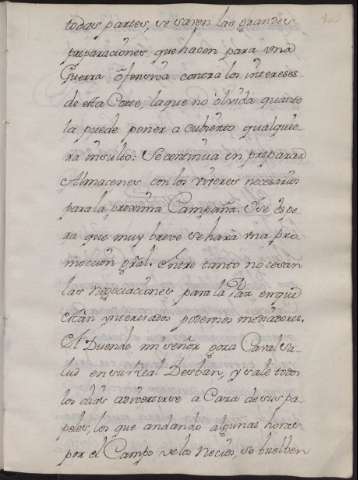 todas partes, se saven las grandes
preparaciones que hacen para una
Guerra ofensiva contra los intereses
de esta Corte, la que no olvida quanto
la puede poner a cubierto qualquie
ra insulto. Se continua en preparar
Almacenes con los viveres necesarios
para la proxima Campaña. Y se espe
ra que muy breve se hará una pro
mocion gral. Entre tanto no cesan
las negociaciones para la Paz en que
estan ynteresados poderosos mediadores.
El Duende mi señor goza Caval sa
lud en su Real Desban, y sale todos
los dias a divertirse a Caza de sus pa
peles, los que andando algunas horas
por el Campo de los Necios, se buelben